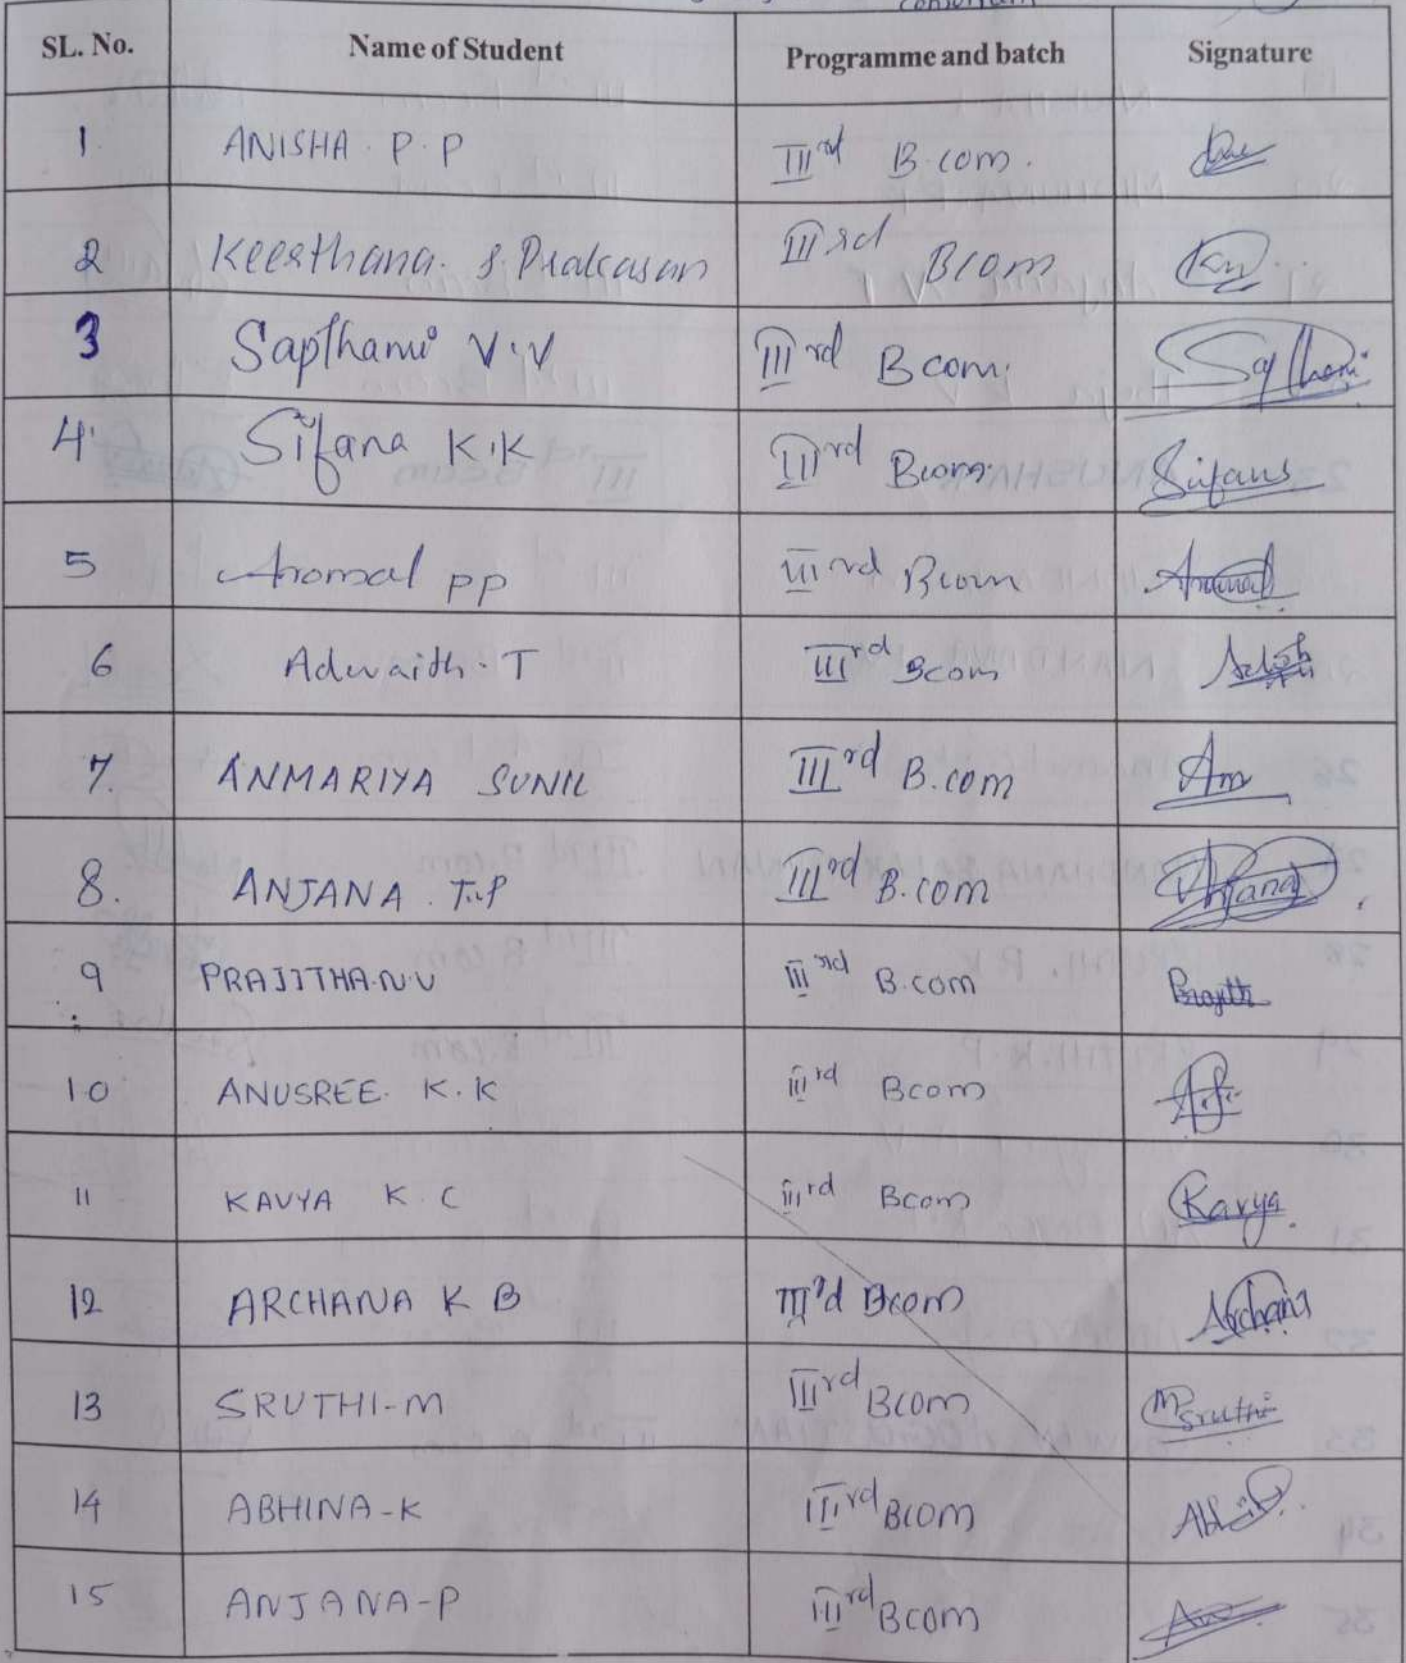 consortium
SL. No. Name of Student Programme and batch Signature
1 ANISHA . P. P IIIrd B.com.
2 Keerthana. S. Prakasan IIIrd Bcom
3 Sapthami V.V IIIrd Bcom. Sapthami
4 Sifana K.K IIIrd Bcom. Sifana
5 Aromal PP IIIrd Bcom Aromal
6 Adwaith. T IIIrd Bcom
7. ANMARIYA SUNIL IIIrd B.com An
8. ANJANA . T.P IIIrd B.com Anjana
9 PRAJITHA.N.V IIIrd B.com Prajith
10 ANUSREE. K.K IIIrd Bcom
11 KAVYA K.C IIIrd Bcom Kavya
12 ARCHANA K B IIIrd Bcom Archana
13 SRUTHI-M IIIrd Bcom Sruthi
14 ABHINA-K IIIrd Bcom
15 ANJANA-P IIIrd Bcom